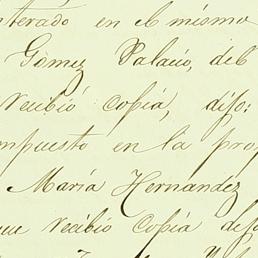 nterado en el mismo
Gómez Palacio, del
recibió copia, dijo:
mpuesto en la prop
María Hernandez
ue recibió copia dijo